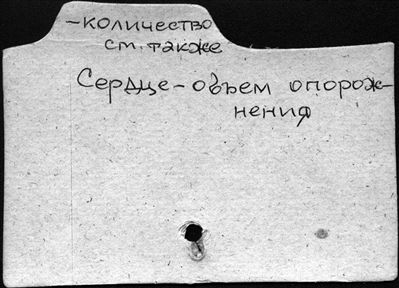 -количество
см. также
Сердце-объем опорож-
нения